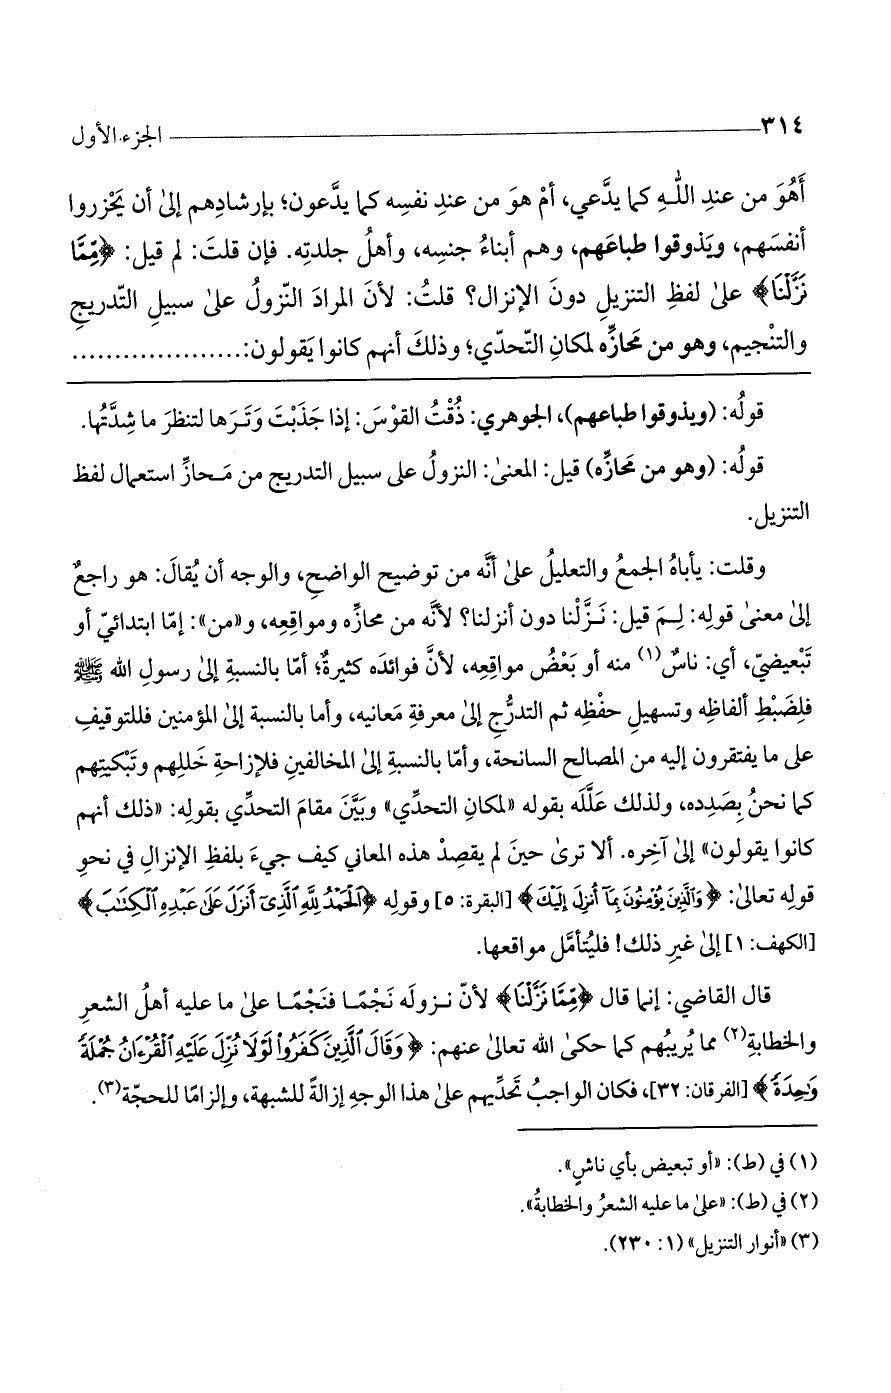 ٣١٤ الجزء الأول
أَهُوَ من عندِ اللَّـهِ كما يدَّعي، أمْ هوَ من عندِ نفسِه كما يدَّعون؛ بإرشادِهم إلىٰ أن يَحْزروا
أنفسَهم، ويَذوقوا طباعَهم، وهم أبناءُ جنسِه، وأهلُ جلدتِه. فإن قلتَ: لم قيل: ﴿مِّمَّا
نَزَّلْنَا﴾ علىٰ لفظِ التنزيلِ دونَ الإنزال؟ قلتُ: لأنَ المرادَ النّزولُ علىٰ سبيلِ التّدريجِ
والتنْجيم، وهو من مَحَازِّه لمكانِ التّحدّي؛ وذلكَ أنهم كانوا يَقولون:....................
قولُه: (ويذوقوا طباعهم)، الجوهري: ذُقْتُ القوْسَ: إذا جَذَبْتَ وَتَـرَها لتنظرَ ما شِدَّتُها.
قولُه: (وهو من مَحَازِّه) قيل: المعنىٰ: النزولُ على سبيل التدريج من مَـحازِّ استعمال لفظ
التنزيل.
وقلت: يأباهُ الجمعُ والتعليلُ علىٰ أنَّه من توضيح الواضحِ، والوجه أن يُقالَ: هو راجعٌ
إلىٰ معنىٰ قولِه: لِـمَ قيل: نَـزَّلْنا دون أنزلنا؟ لأنَّه من محازِّه ومواقِعِه، و«من»: إمّا ابتدائيّ أو
تَبْعيضيّ، أي: ناسٌ(١) منه أو بَعْضُ مواقِعِه، لأنَّ فوائدَه كثيرةٌ؛ أمّا بالنسبةِ إلىٰ رسولِ الله ﷺ
فلِضَبْطِ ألفاظِه وتسهيلِ حفْظِه ثم التدرُّجِ إلىٰ معرفةِ مَعانيه، وأما بالنسبة إلىٰ المؤمنين فللتوقيفِ
على ما يفتقرون إليه من المصالح السانحة، وأمّا بالنسبةِ إلىٰ المخالفينِ فلإزاحةِ خَللِهم وتَبْكيتِهم
كما نحنُ بِصَدِده، ولذلك عَلَّلَه بقوله «لمكانِ التحدِّي» وبَيَّنَ مقامَ التحدِّي بقولِه: «ذلك أنهم
كانوا يقولون» إلىٰ آخِره. ألا ترىٰ حينَ لم يقصِدْ هذه المعاني كيف جيءَ بلفظِ الإنزالِ في نحوِ
قولِه تعالىٰ: ﴿وَالَّذِينَ يُؤْمِنُونَ بِمَآ أُنزِلَ إِلَيْكَ﴾ [البقرة: ٥] وقوله ﴿الْحَمْدُ لِلَّهِ الَّذِىٓ أَنزَلَ عَلَىٰ عَبْدِهِ الْكِتَٰبَ﴾
[الكهف: ١] إلىٰ غيرِ ذلك! فليُتأمَّل مواقعها.
قال القاضي: إنما قال ﴿مِّمَّا نَزَّلْنَا﴾ لأنّ نـزولَه نَجْمًـا فنَجْمًـا علىٰ ما عليه أهلُ الشعرِ
والخطابةِ(٢) مما يُريبُهم كما حكىٰ الله تعالىٰ عنهم: ﴿وَقَالَ الَّذِينَ كَفَرُوا۟ لَوْلَا نُزِّلَ عَلَيْهِ الْقُرْءَانُ جُمْلَةً
وَٰحِدَةً﴾ [الفرقان: ٣٢]، فكان الواجبُ تَحدِّيهم علىٰ هذا الوجهِ إزالةً للشبهة، وإلزامًا للحجّة(٣).
(١) في (ط): «أو تبعيض بأي ناشٍ».
(٢) في (ط): «علىٰ ما عليه الشعرُ والخطابةُ».
(٣) «أنوار التنزيل» (١: ٢٣٠).